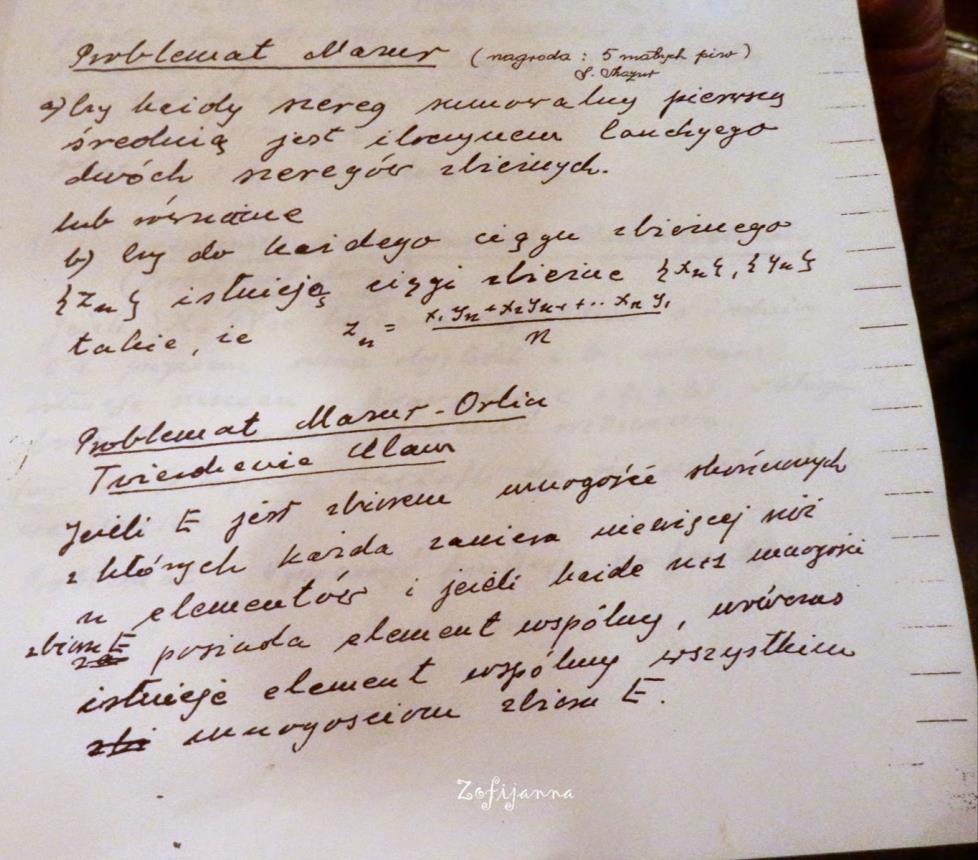 Problemat Mazur (nagroda: 5 małych piw)
S. Mazur
a) Czy każdy szereg sumowalny pierwszą
średnią jest iloczynem Cauchyego
dwóch szeregów zbieżnych.
lub równoważnie
b) Czy do każdego ciągu zbieżnego
{zn} istnieją ciągi zbieżne {xn}, {yn}
takie, że zn = x1 yn + x2 yn-1 + .. xn y1 / n
Problemat Mazur-Orlicz
Twierdzenie Ulam
Jeżeli E jest zbiorem mnogości skończonych
z których każda zawiera niewięcej niż
n elementów i jeżeli każde n+1 mnogości
zbioru E posiada element wspólny, wówczas
istnieje element wspólny wszystkim
mnogościom zbioru E.
Zofijanna